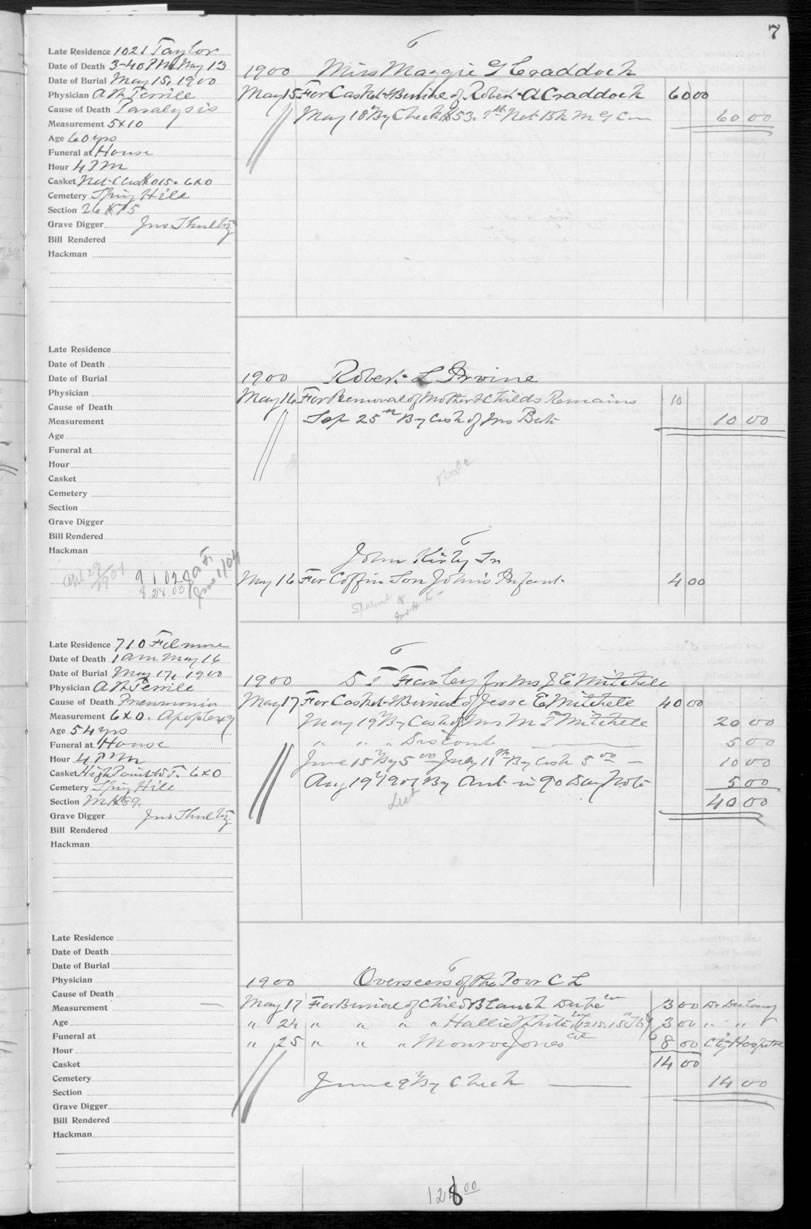 7
Late Residence 1021 Taylor
Date of Death 3-40 PM May 13
Date of Burial May 15, 1900
Physician
Cause of Death Paralysis
Measurement 5x10
Age 60 yrs
Funeral at House
Hour 4 PM
Casket 6x0
Cemetery Spring Hill
Section 26
Grave Digger Jno Shultz
Bill Rendered
Hackman
1900 Miss Maggie G Craddock
May 15 For Casket & Burial of Robert A Craddock 60 00
May 18th By Check 60 00
Late Residence
Date of Death
Date of Burial
Physician
Cause of Death
Measurement
Age
Funeral at
Hour
Casket
Cemetery
Section
Grave Digger
Bill Rendered
Hackman
1900 Robert L Irvine
May 16 For Removal of Mother & Childs Remains 10
Sep 25th By Cash of Jno 10 00
John Kirby Sr
May 16 For Coffin Son John's Infant 4 00
Late Residence 710 Filmore
Date of Death 1 am May 16
Date of Burial May 17, 1900
Physician
Cause of Death Pneumonia
Measurement 6x0. Apoplexy
Age 54 yrs
Funeral at House
Hour 4 PM
Casket 6x0
Cemetery Spring Hill
Section
Grave Digger Jno Shultz
Bill Rendered
Hackman
1900 for Mrs J E Mitchell
May 17 For Casket & Burial of Jesse E Mitchell 40 00
May 19th By Cash of Mitchell 20 00
" " " Discount 5 00
June 15th By 5 00 July 11th By Cash 5 00 10 00
Aug 19th 1901 By Amt in 90 Day Note 5 00
40 00
Late Residence
Date of Death
Date of Burial
Physician
Cause of Death
Measurement
Age
Funeral at
Hour
Casket
Cemetery
Section
Grave Digger
Bill Rendered
Hackman
1900 Overseers of the Poor C L
May 17 For Burial of Child Blanch 3 00
" 24 " " " " Hallie White 3 00 " "
" 25 " " " Monroe Jones col 8 00 City Hospital
14 00
June 9th By Check 14 00
128 00